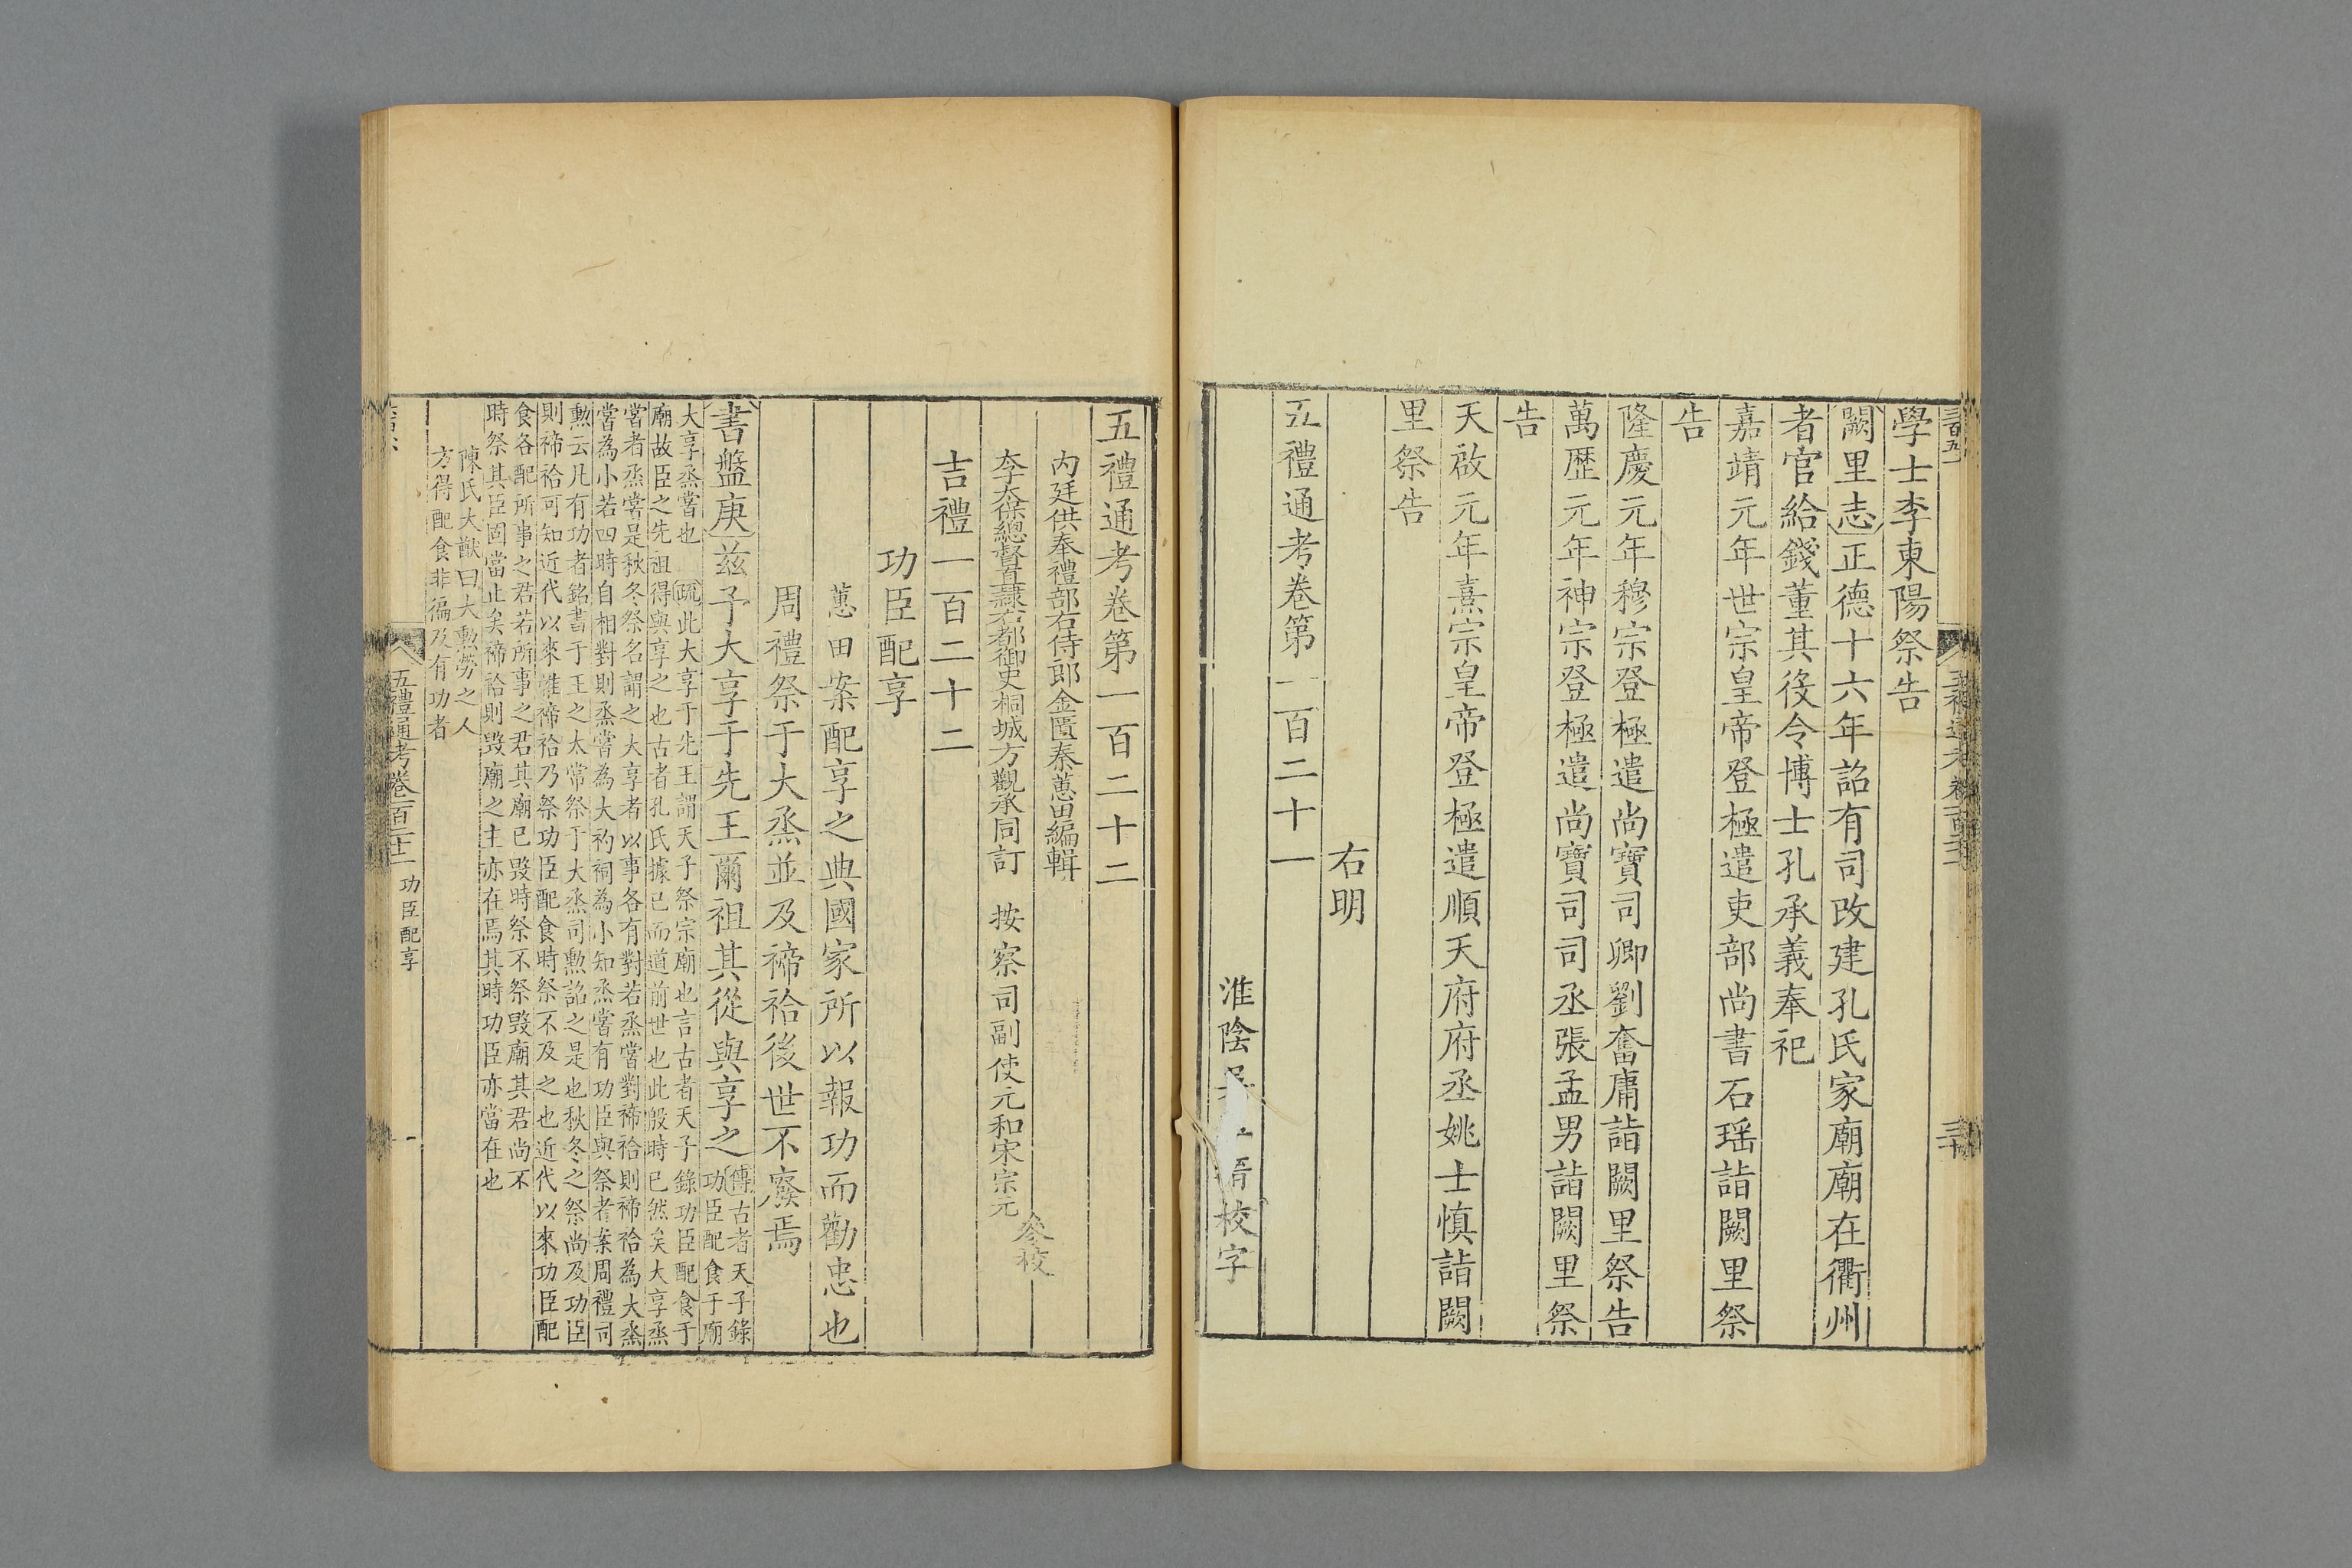 學士李東陽祭告
闕里志正德十六年詔有司改建孔氏家廟廟在衢州
者官給錢董其役令博士孔承義奉祀
嘉靖元年世宗皇帝登極遣吏部尚書石瑶詣闕里祭
告
隆慶元年穆宗登極遣尚寶司卿劉奮庸詣闕里祭告
萬歷元年神宗登極遣尚寶司司丞張孟男詣闕里祭
告
天啟元年熹宗皇帝登極遣順天府府丞姚士慎詣闕
里祭告
右明
五禮通考卷第一百二十一
淮陰吳 校字
五禮通考卷第一百二十二
內廷供奉禮部右侍郎金匱秦蕙田編輯
李太保總督直隸右都御史桐城方觀承同訂 按察司副使元和宋宗元
參校
吉禮一百二十二
功臣配享
蕙田案配享之典國家所以報功而勸忠也
周禮祭于大烝並及禘祫後世不廢焉
書盤庚茲予大享于先王爾祖其從與享之
傳古者天子錄
功臣配食于廟
大享烝嘗也 疏此大享于先王謂天子祭宗廟也言古者天子錄功臣配食于
廟故臣之先祖得與享之也古者孔氏據已而道前世也此殷時已然矣大享烝
嘗者烝嘗是秋冬祭名謂之大享者以事各有對若烝嘗對禘祫則禘祫為大烝
嘗為小若四時自相對則烝嘗為大礿祠為小知烝嘗有功臣與祭者案周禮司
勲云凡有功者銘書于王之太常祭于大烝司勲詔之是也秋冬之祭尚及功臣
則禘祫可知近代以來惟禘祫乃祭功臣配食時祭不及之也近代以來功臣配
食各配所事之君若所事之君其廟已毀時祭不祭毀廟其君尚不
時祭其臣固當止矣禘祫則毀廟之主亦在焉其時功臣亦當在也
陳氏大猷曰大勲勞之人
方得配食非徧及有功者
五禮通考卷一百二十二 功臣配享
一